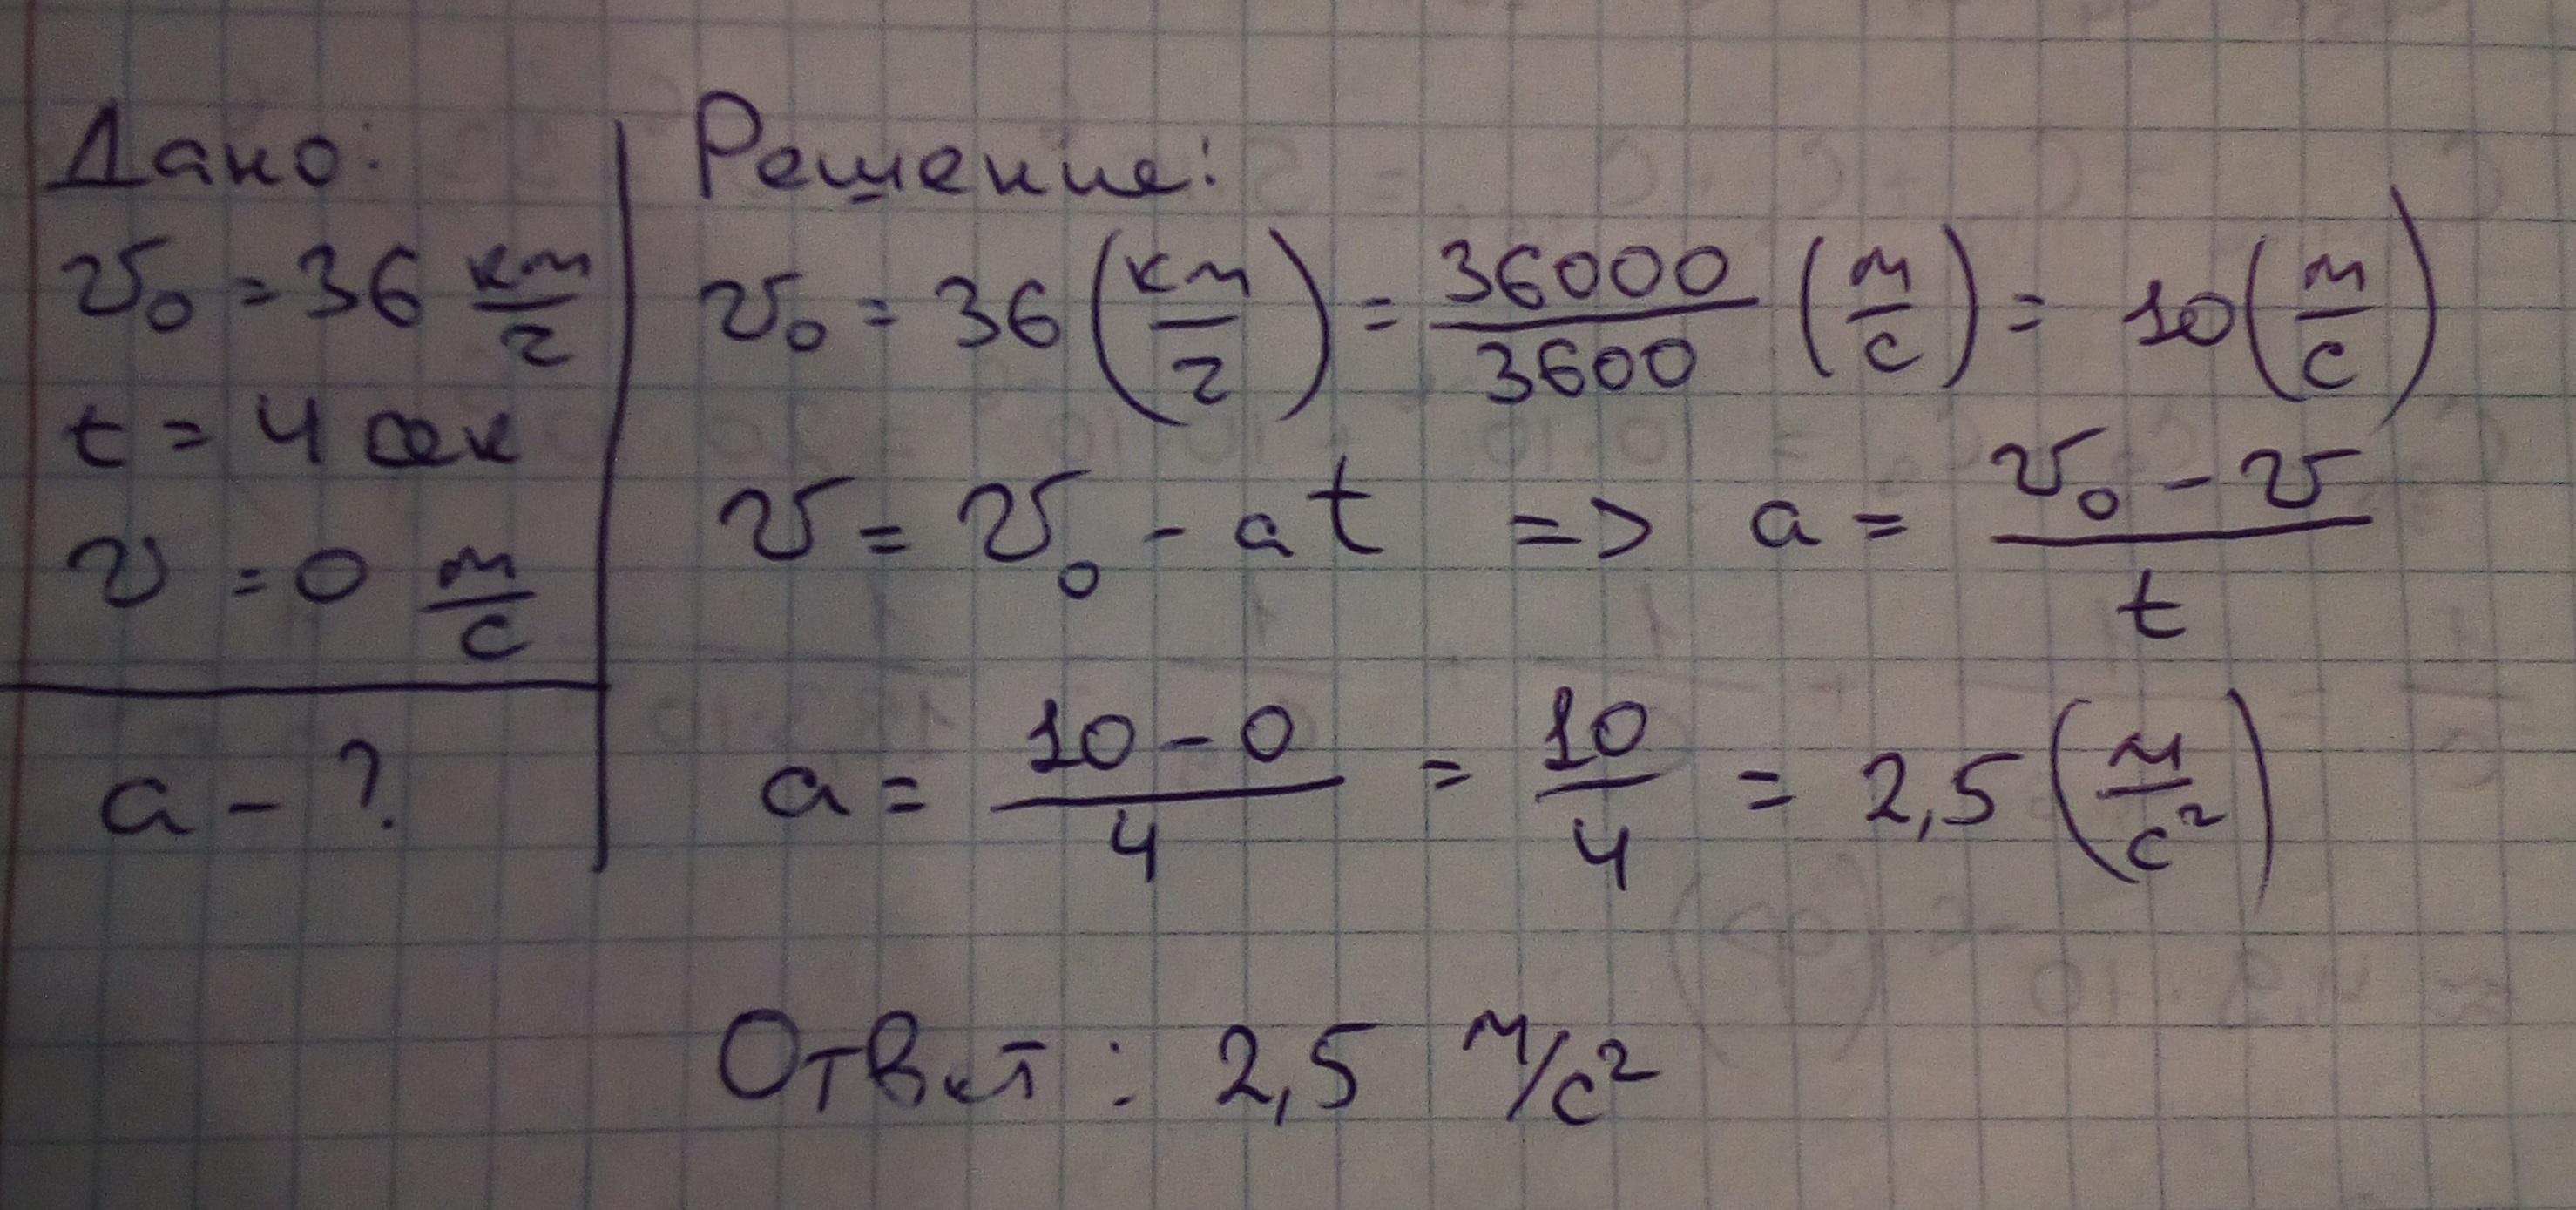 Дано:
v₀ = 36 км/г
t = 4 сек
v = 0 м/с
a - ?
Решение:
v₀ = 36 (км/г) = 36000/3600 (м/с) = 10 (м/с)
v = v₀ - at => a = (v₀ - v)/t
a = (10 - 0)/4 = 10/4 = 2,5 (м/с²)
Ответ: 2,5 м/с²